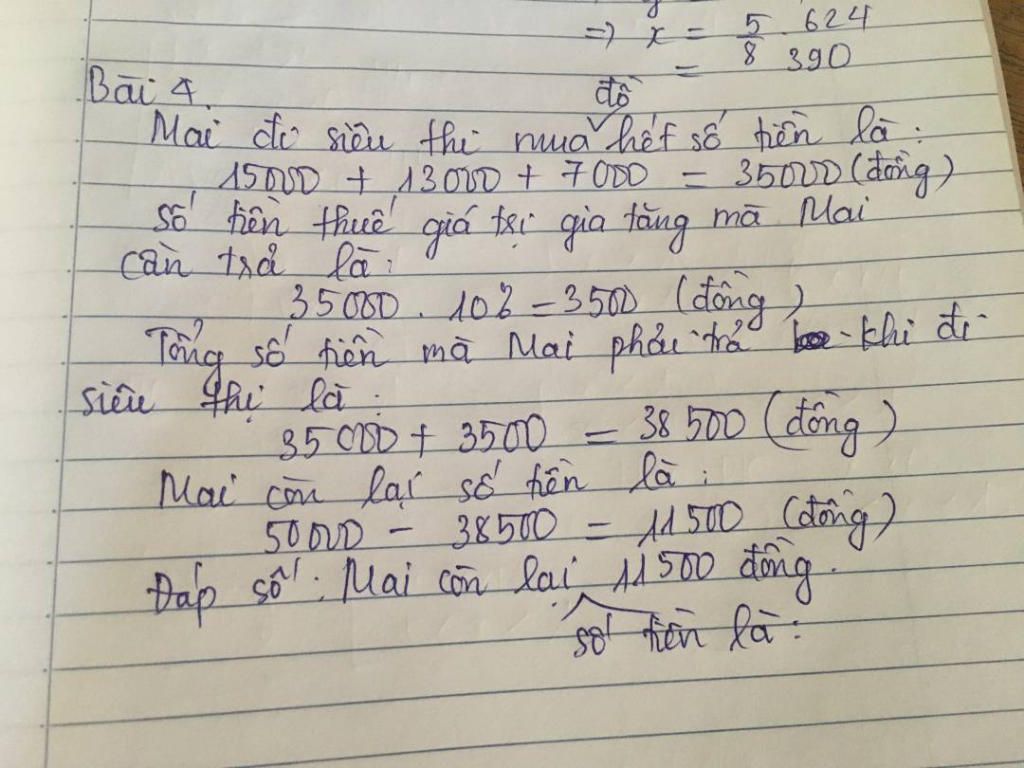 => x = 5/8 . 624
= 390
Bài 4.
Mai đi siêu thị mua đồ hết số tiền là:
15000 + 13000 + 7000 = 35000 (đồng)
Số tiền thuế giá trị gia tăng mà Mai
cần trả là:
35000 . 10% = 3500 (đồng)
Tổng số tiền mà Mai phải trả khi đi
siêu thị là:
35000 + 3500 = 38500 (đồng)
Mai còn lại số tiền là:
50000 - 38500 = 11500 (đồng)
Đáp số: Mai còn lại số tiền là: 11500 đồng.